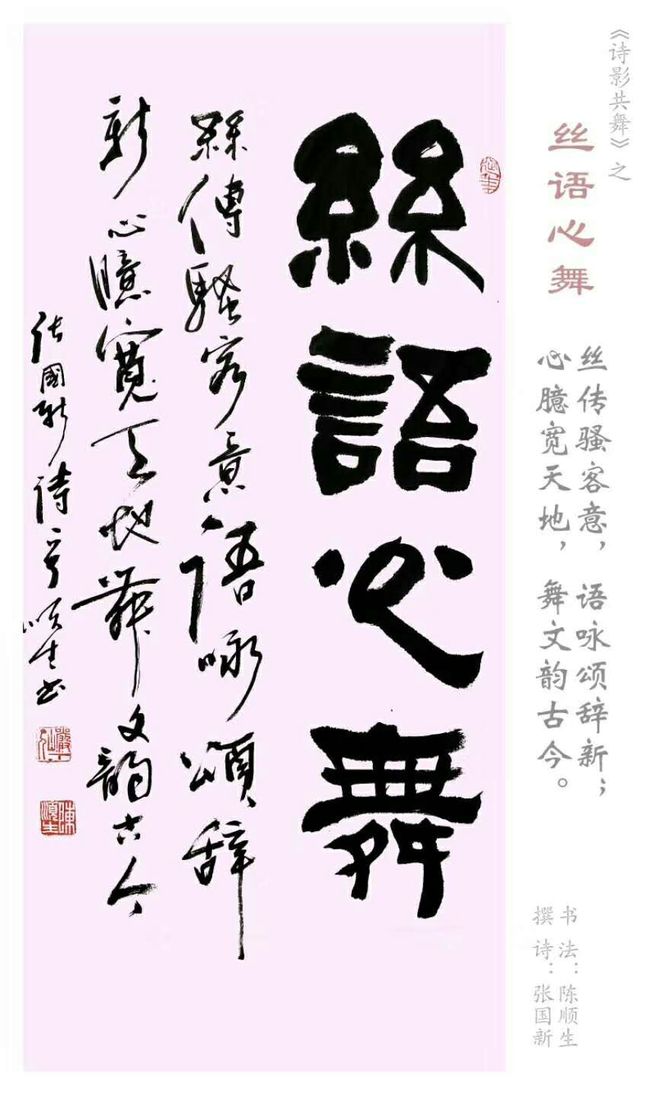 《诗影共舞》之
丝语心舞
丝传骚客意，语咏颂辞新；
心臆宽天地，舞文韵古今。
书法：陈顺生
撰诗：张国新
絲語心舞
絲傳騷客意語咏頌辞
新心臆寬天地舞文韵古今
张國新诗句顺生书
陳順生